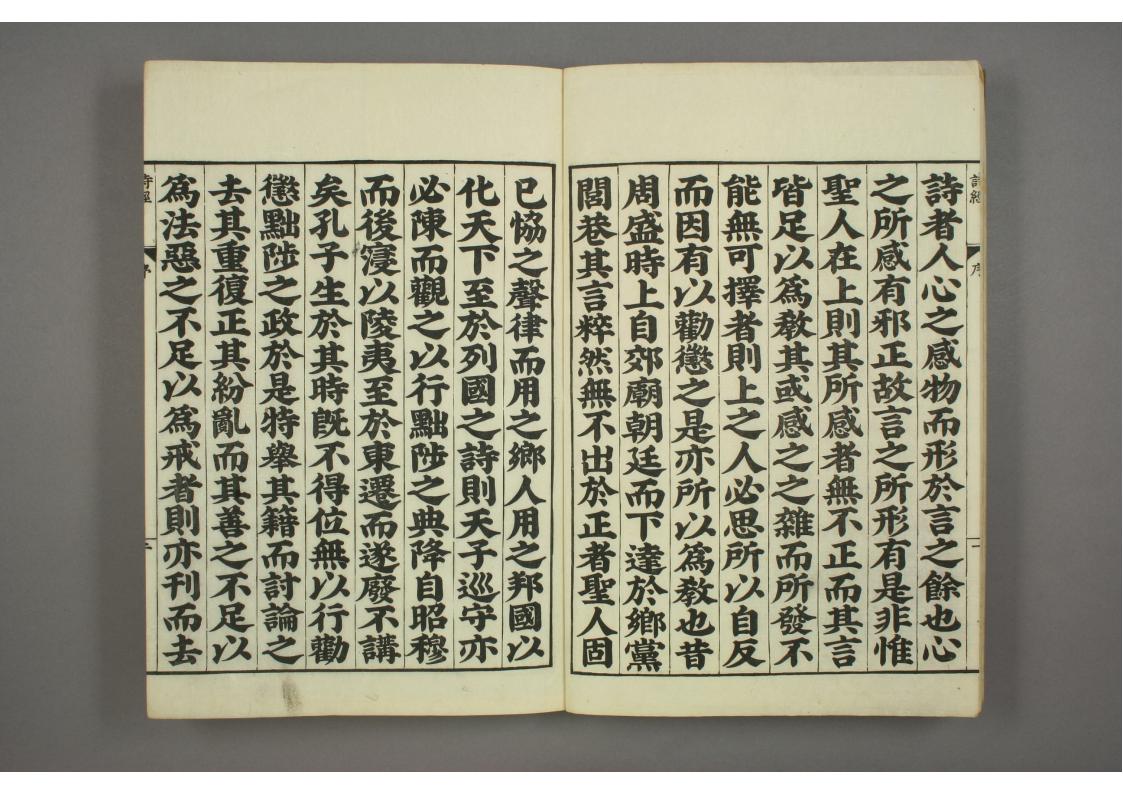 詩經
序
一
詩者人心之感物而形於言之餘也心
之所感有邪正故言之所形有是非惟
聖人在上則其所感者無不正而其言
皆足以爲敎其或感之之雜而所發不
能無可擇者則上之人必思所以自反
而因有以勸懲之是亦所以爲敎也昔
周盛時上自郊廟朝廷而下達於鄕黨
閭巷其言粹然無不出於正者聖人固
已恊之聲律而用之鄕人用之邦國以
化天下至於列國之詩則天子巡守亦
必陳而觀之以行黜陟之典降自昭穆
而後寖以陵夷至於東遷而遂廢不講
矣孔子生於其時旣不得位無以行勸
懲黜陟之政於是特舉其籍而討論之
去其重復正其紛亂而其善之不足以
爲法惡之不足以爲戒者則亦刊而去
詩經
序